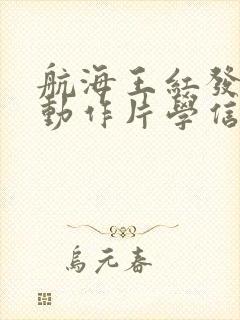 航海王紅發
動作片學信
烏元春